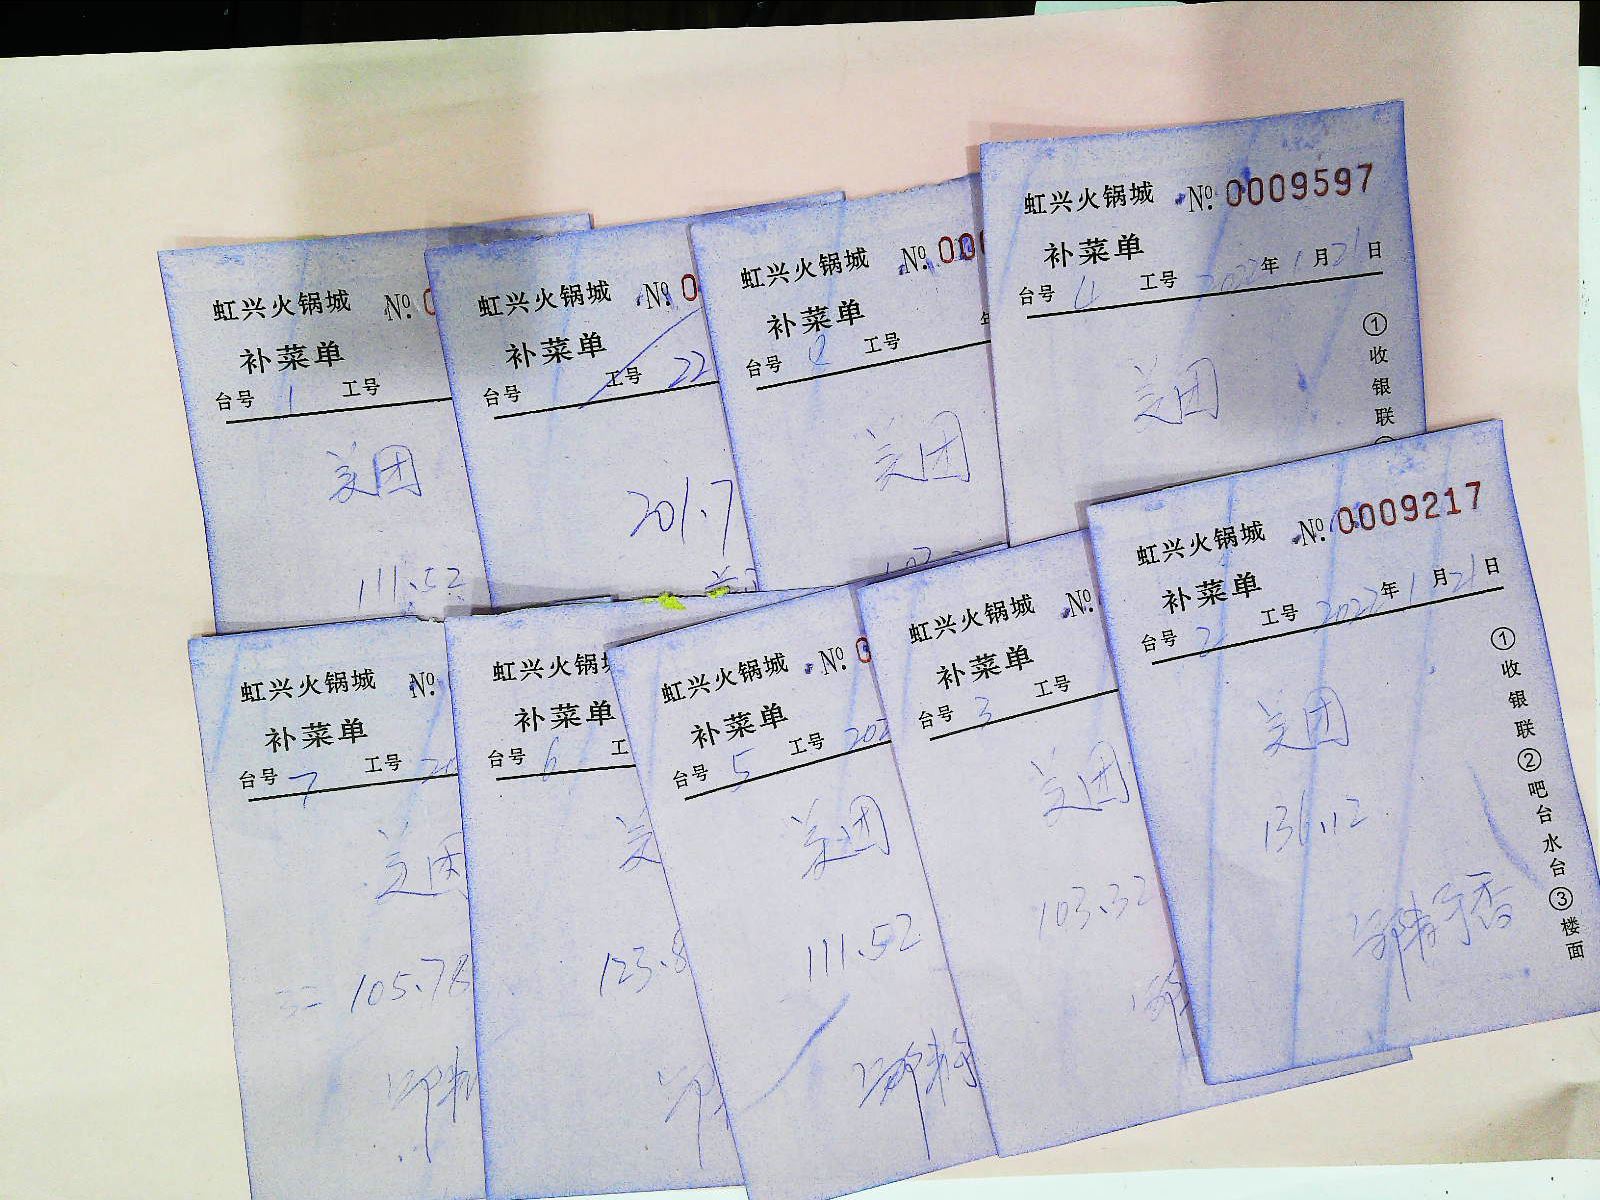 虹兴火锅城 №. 0
补菜单
台号 1 工号
美团
111.52
虹兴火锅城 №. 0
补菜单
台号 工号 22
201.7
虹兴火锅城 №. 000
补菜单
台号 工号 年
美团
虹兴火锅城 №. 0009597
补菜单
台号 4 工号 2022年1月21日
美团
①收银联
虹兴火锅城 №.
补菜单
台号 7 工号 20
美团
105.78
虹兴火锅城
补菜单
台号 6 工
美
123.8
虹兴火锅城 №. 0
补菜单
台号 5 工号 202
美团
111.52
虹兴火锅城 №.
补菜单
台号 3 工号
美团
103.32
虹兴火锅城 №. 0009217
补菜单
台号 2 工号 2022年1月21日
美团
136.12
①收银联②吧台水台③楼面